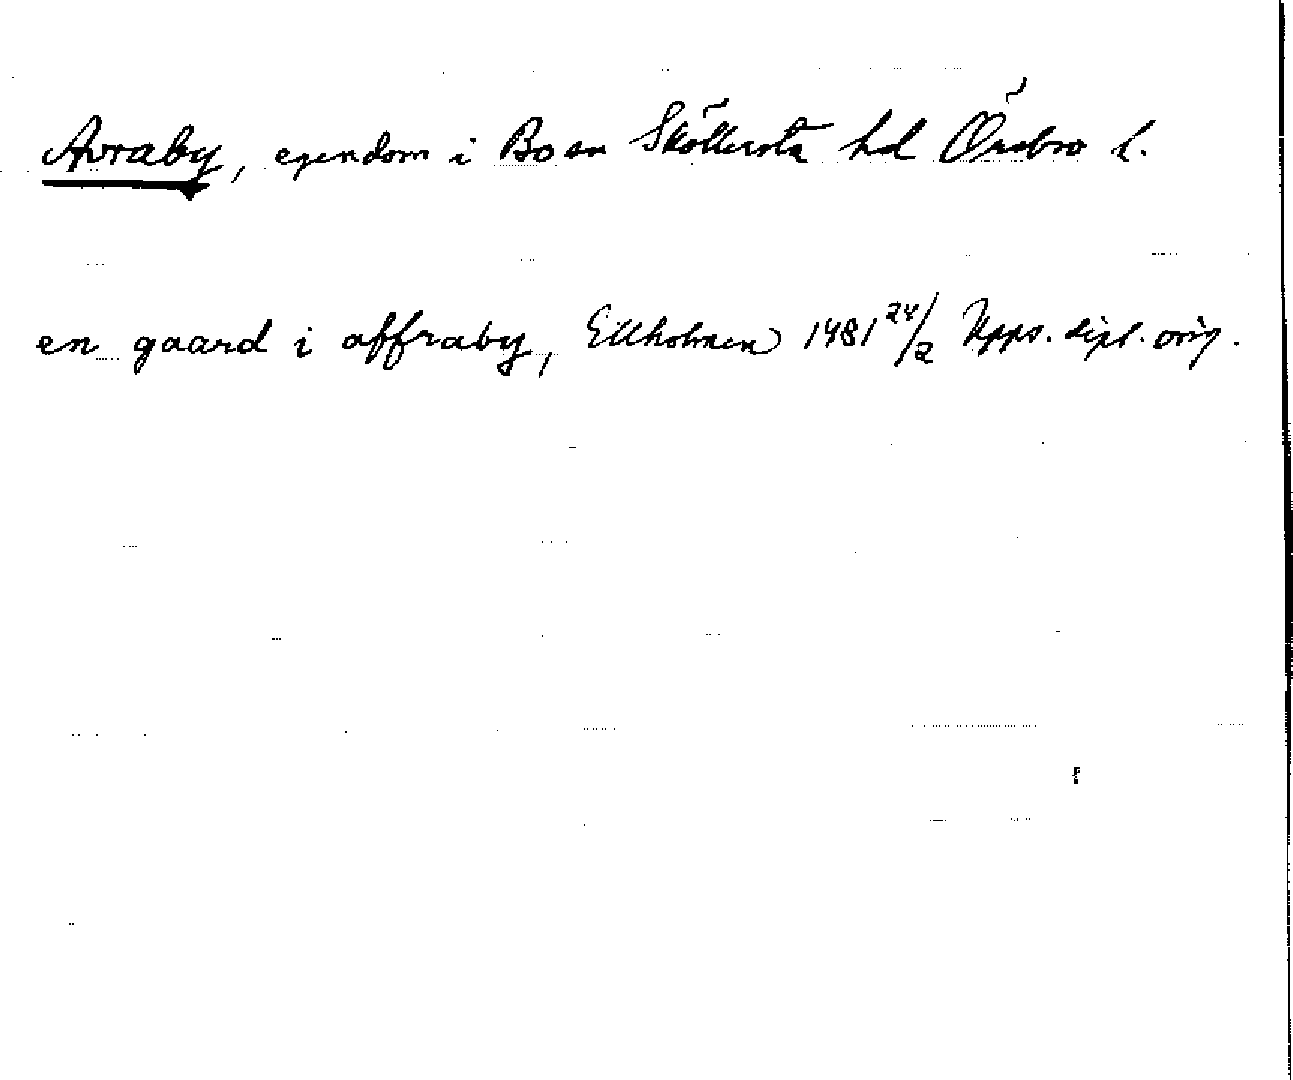 Avraby, egendom i Bo sn Sköllersta hd Örebro l.
en gaard i affraby, Ekholmen 1481 24/2 Upps. dipl. orig.